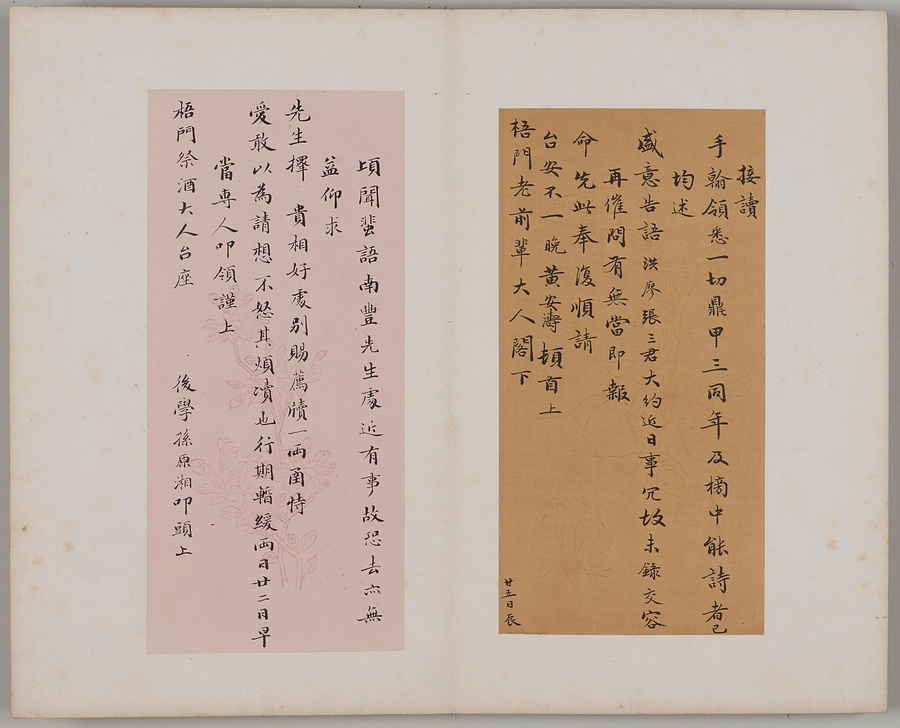 接讀
手翰領悉一切鼎甲三同年及榜中能詩者已
均述
盛意告語洪廖張三君大約近日事冗故未錄交容
再催問有無當即報
命先此奉復順請
台安不一晚黄安濤頓首上
梧門老前輩大人閣下
廿五日辰
頃聞蜚語南豐先生處近有事故恐去亦無
益仰求
先生擇貴相好處別賜薦牘一兩函恃
愛敢以為請想不怒其煩瀆也行期暫緩兩日廿二日早
當專人叩領謹上
梧門祭酒大人台座
後學孫原湘叩頭上